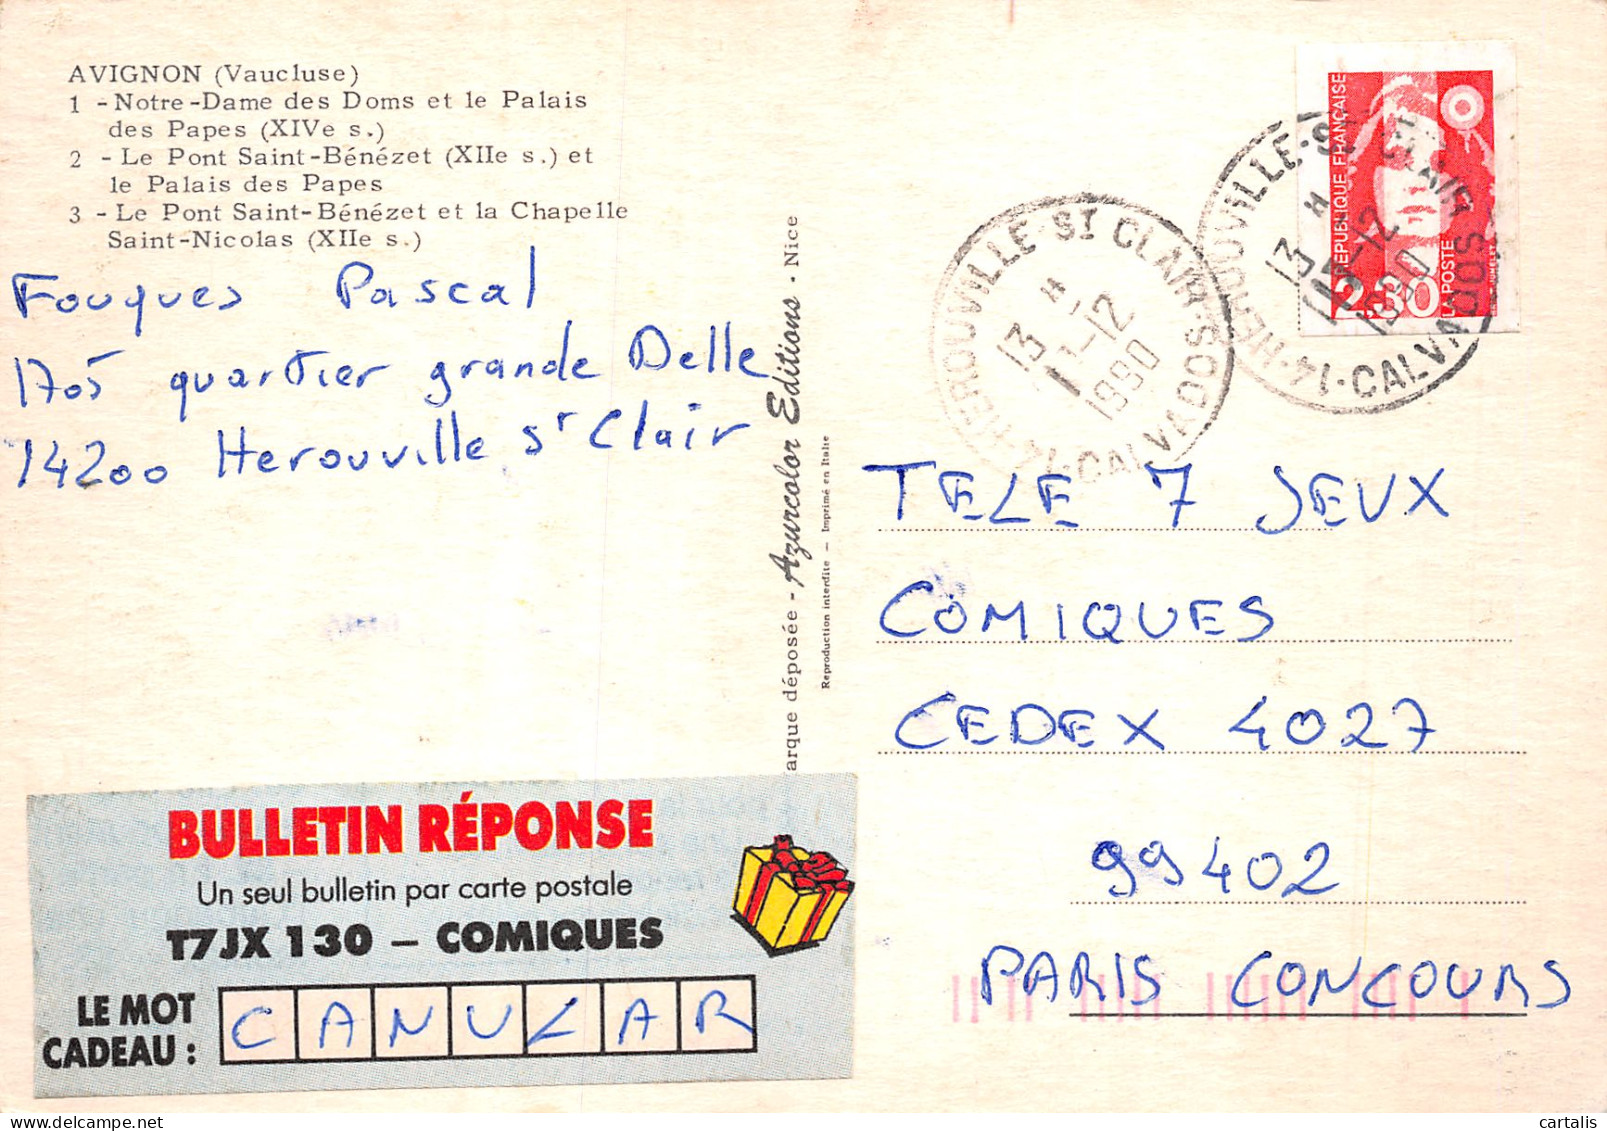 AVIGNON (Vaucluse)
1 - Notre-Dame des Doms et le Palais
des Papes (XIVe s.)
2 - Le Pont Saint-Bénézet (XIIe s.) et
le Palais des Papes
3 - Le Pont Saint-Bénézet et la Chapelle
Saint-Nicolas (XIIe s.)
Fouques Pascal
1705 quartier grande Delle
14200 Herouville St Clair
arque déposée - Azurcolor Editions - Nice
Reproduction interdite - Imprimé en Italie
RÉPUBLIQUE FRANÇAISE
2,30
LA POSTE
14-HEROUVILLE-ST CLAIR-CALVADOS
13 H
-12
1990
14-HEROUVILLE-ST CLAIR-CALVADOS
13 H
-12
1990
TELE 7 JEUX
COMIQUES
CEDEX 4027
99402
PARIS CONCOURS
BULLETIN RÉPONSE
Un seul bulletin par carte postale
T7JX 130 – COMIQUES
LE MOT
CADEAU : CANULAR
cartalis